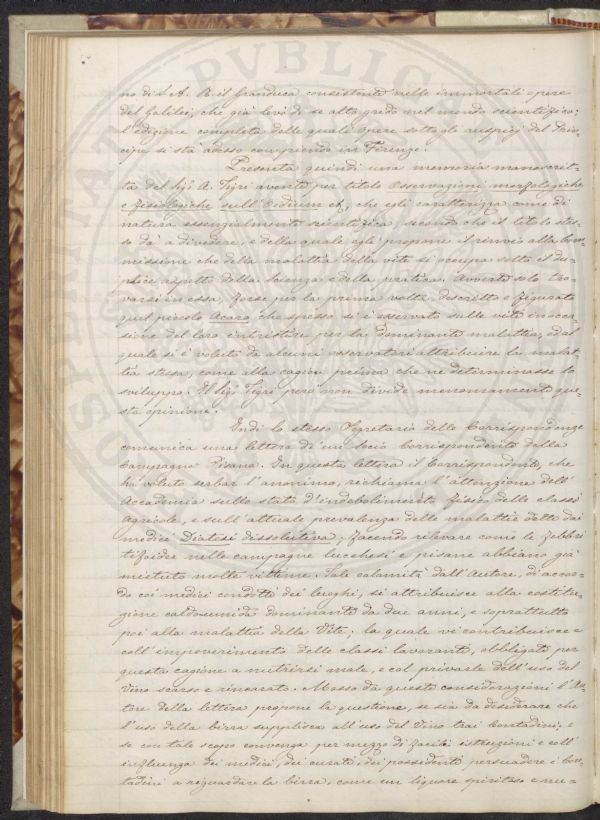 no di S. A. R. il Granduca consistente nelle immortali opere
del Galilei, che già levò di se alto grido nel mondo scientifico;
l'edizione completa delle quali opere sotto gli auspicj del Prin-
cipe si stà adesso compiendo in Firenze.
Presenta quindi una memoria manoscrit-
ta del Sig. A. Tigri avente per titolo Osservazioni morfologiche
e fisiologiche sull'Oidium &, che egli caratterizza come di
natura essenzialmente scientifica, secondo che il titolo stes-
so dà a divedere, e della quale egli propone il rinvio alla Com-
missione che della malattia della vite si occupa sotto il du-
plice aspetto della scienza e della pratica. Avverte solo tro-
varsi in essa, forse per la prima volta, descritto e figurato
quel piccolo Acaro che spesso si è osservato sulle viti in occa-
sione del loro intristire per la dominante malattia, e dal
quale si è voluto da alcuni osservatori attribuire la malat-
tia stessa, come alla cagion prima che ne determinasse lo
sviluppo. Il Sig. Tigri però non divide menomamente que-
sta opinione.
Indi lo stesso Segretario delle Corrispondenze
comunica una lettera di un Socio Corrispondente della
Campagna Pisana. In questa lettera il Corrispondente, che
ha voluto serbar l'anonimo, richiama l'attenzione dell'
Accademia sullo stato d'indebolimento fisico delle classi
Agricole, e sull'attuale prevalenza delle malattie dette dai
medici Diatesi dissolutiva; facendo rilevare come le febbri
tifoidee nelle campagne lucchesi e pisane abbiano già
mietuto molte vittime. Tale calamità dall'Autore, di accor-
do coi medici condotti dei luoghi, si attribuisce alla costitu-
zione caldo-umida dominante da due anni, e soprattutto
poi alla malattia della Vite; la quale vi contribuisce e
coll'impoverimento delle classi lavoranti, obbligate per
questa cagione a nutrirsi male, e col privarle dell'uso del
Vino scarso e rincarato. Mosso da queste considerazioni l'Au-
tore della lettera propone la questione, se sia da desiderare che
l'uso della birra supplisca all'uso del Vino trai Contadini; e
se con tale scopo convenga per mezzo di facili istruzioni e coll'
influenza dei medici, dei curati, dei possidenti persuadere i Con-
tadini a riguardare la birra, come un liquore spiritoso e nu-